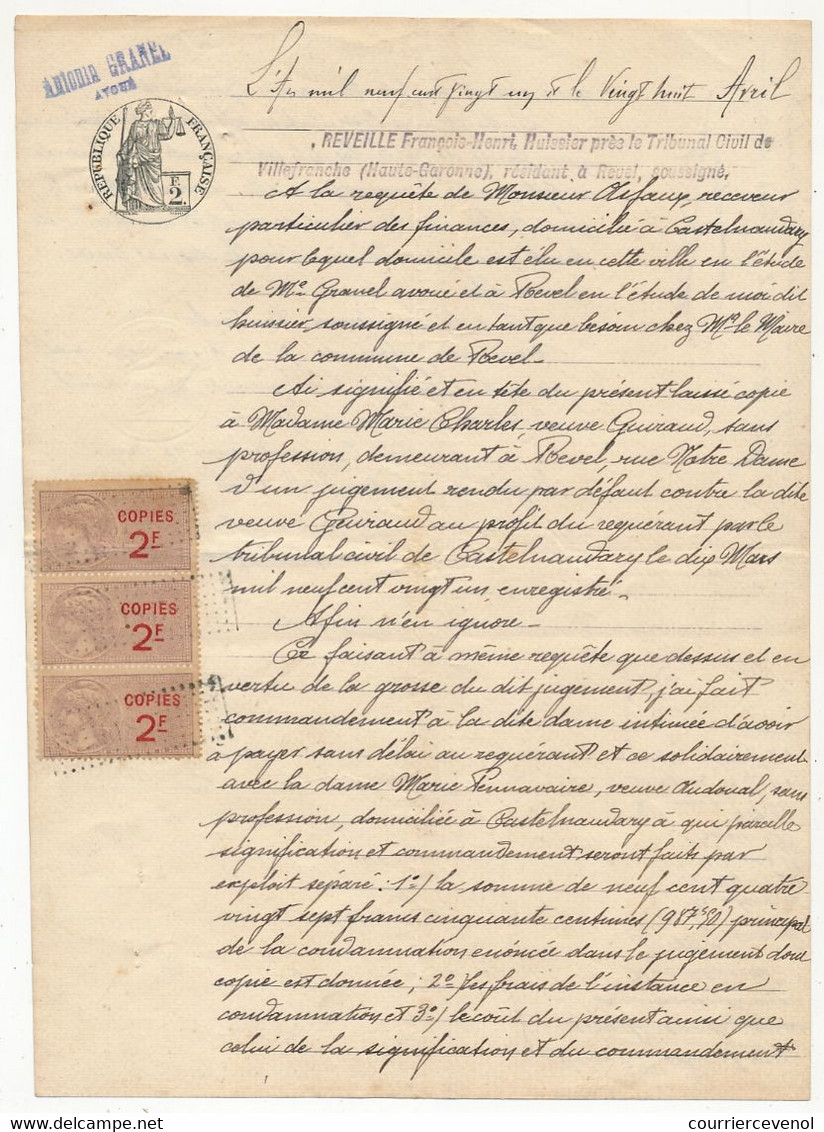 Antonin GRANEL
AVOUÉ
RÉPUBLIQUE FRANÇAISE
F.
2.
L'An mil neuf cent vingt un et le vingt huit Avril
, REVEILLE François-Henri, Huissier près le Tribunal Civil de
Villefranche (Haute-Garonne), résidant à Revel, soussigné,
A la requête de Monsieur receveur
particulier des finances, domicilié à Castelnaudary
pour lequel domicile est élu en cette ville en l'étude
de Me Granel avoué et à Revel en l'étude de moi dit
huissier, soussigné et en tant que besoin chez Mr le Maire
de la commune de Revel.
Ai signifié et en tête du présent laissé copie
à Madame Marie Charles, veuve Guiraud, sans
profession, demeurant à Revel, rue Notre Dame
d'un jugement rendu par défaut contre la dite
veuve Guiraud au profit du requérant par le
tribunal civil de Castelnaudary le dix Mars
mil neuf cent vingt un, enregistré.
Afin n'en ignore.
Ce faisant à même requête que dessus et en
vertu de la grosse du dit jugement, j'ai fait
commandement à la dite dame intimée d'avoir
à payer sans délai au requérant et ce solidairement
avec la dame Marie Pennavaire, veuve Audoual, sans
profession, domiciliée à Castelnaudary à qui pareille
signification et commandement seront faits par
exploit séparé: 1o/ la somme de neuf cent quatre
vingt sept francs cinquante centimes (987f,50) principal
de la condamnation énoncée dans le jugement dont
copie est donnée; 2o/ les frais de l'instance en
condamnation et 3o/ le coût du présent ainsi que
celui de la signification et du commandement
COPIES
2F
COPIES
2F
COPIES
2F
courriercevenol